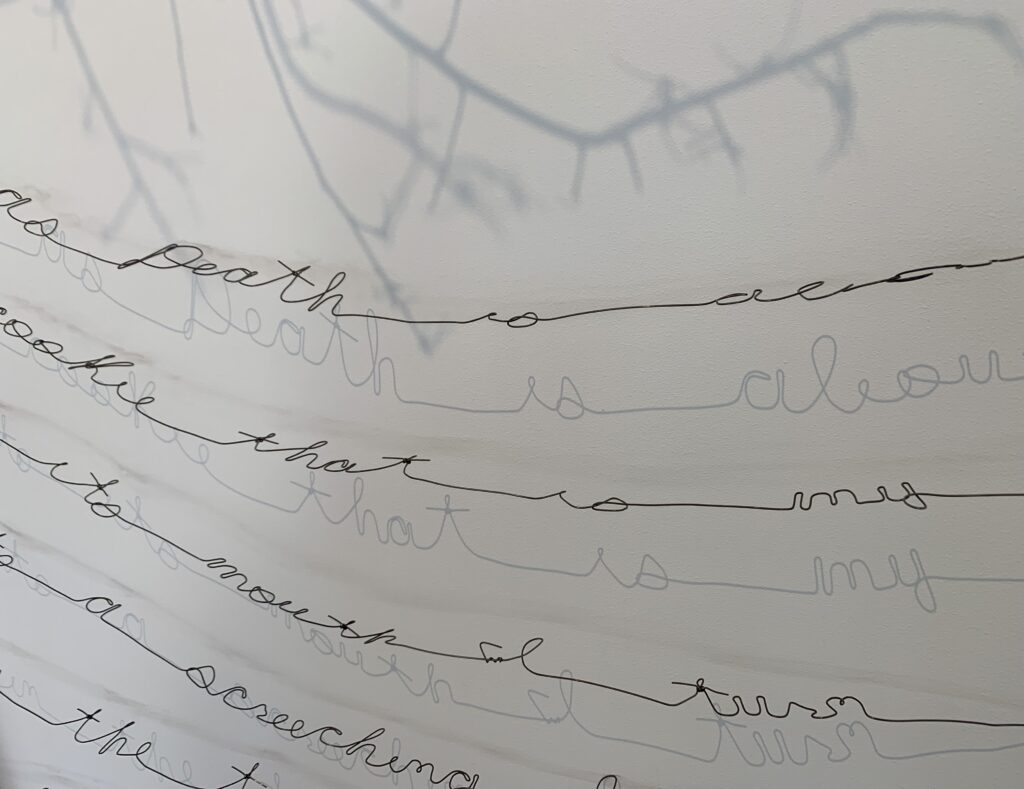 as Death is
cookie that is my
to mouth i'll turn
a screeching
the